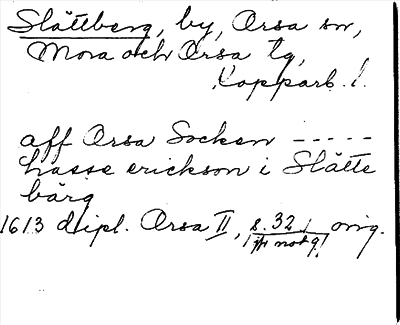 Slättberg, by, Orsa sn,
Mora och Orsa tg,
Kopparb. l.
aff Orsa Socken -----
hasse erickson i Slätte
bärg
1613 dipl. Orsa II, s. 32 orig.